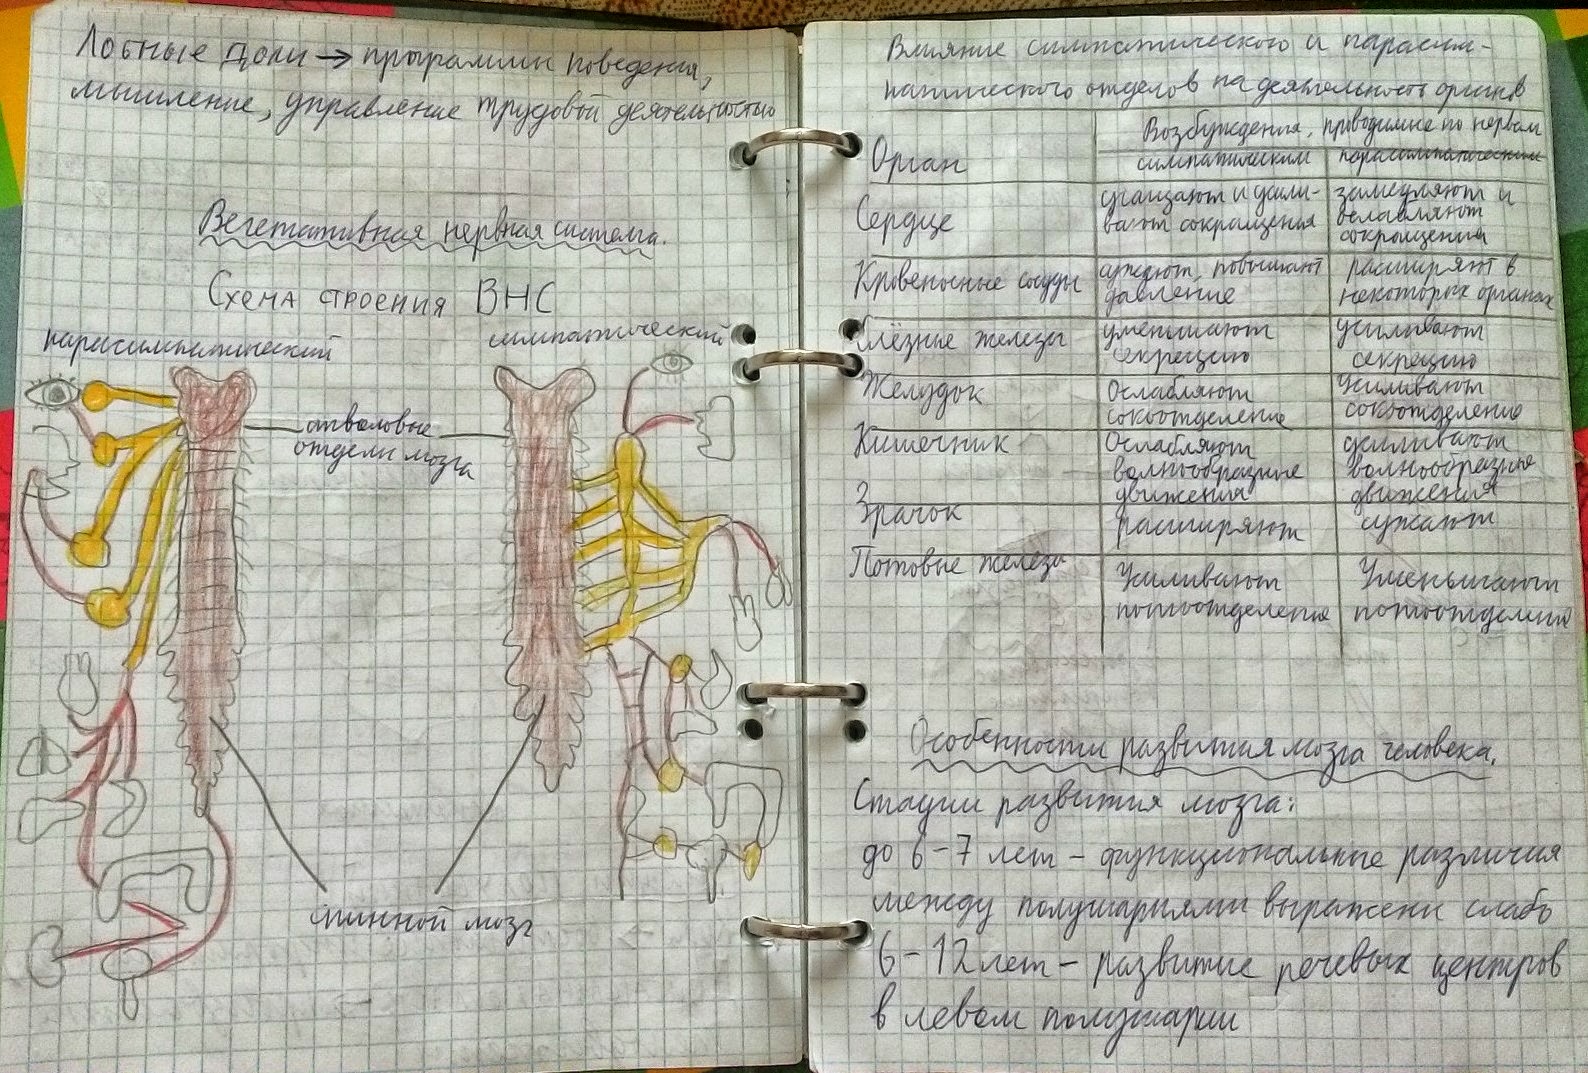 Лобные доли → программы поведения,
мышление, управление трудовой деятельностью
Вегетативная нервная система.
Схема строения ВНС
парасимпатический
симпатический
стволовые
отделы мозга
спинной мозг
Влияние симпатического и парасим-
патического отделов на деятельность органов
Орган
Возбуждения, проводимые по нервам
симпатическим
парасимпатическим
Сердце
учащают и усили-
вают сокращения
замедляют и
ослабляют
сокращения
Кровеносные сосуды
сужают, повышают
давление
расширяют в
некоторых органах
Слёзные железы
уменьшают
секрецию
усиливают
секрецию
Желудок
Ослабляют
сокоотделение
Усиливают
сокоотделение
Кишечник
Ослабляют
волнообразные
движения
усиливают
волнообразные
движения
Зрачок
расширяют
сужают
Потовые железы
Усиливают
потоотделение
Уменьшают
потоотделение
Особенности развития мозга человека.
Стадии развития мозга:
до 6-7 лет - функциональные различия
между полушариями выражены слабо
6-12 лет - развитие речевых центров
в левом полушарии